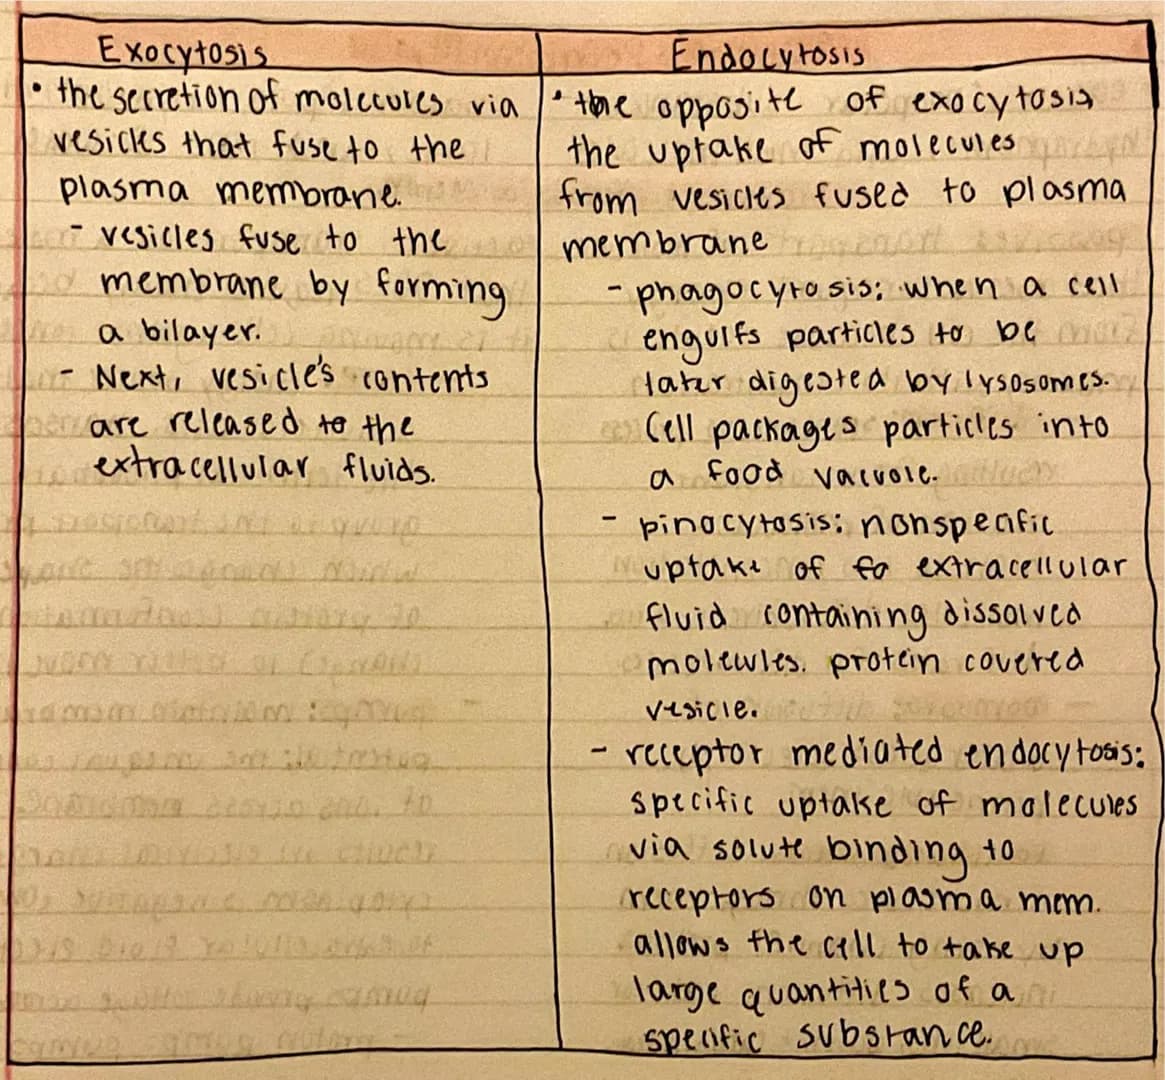 Exocytosis
• the secretion of molecules via
vesicles that fuse to the
plasma membrane.
- vesicles fuse to the
membrane by forming
a bilayer.
- Next, vesicle's contents
are released to the
extracellular fluids.
Endocytosis
• the opposite of exocytosis
the uptake of molecules
from vesicles fused to plasma
membrane
- phagocytosis: when a cell
engulfs particles to be
later digested by lysosomes.
Cell packages particles into
a food vacuole.
- pinocytosis: nonspecific
uptake of extracellular
fluid containing dissolved
molecules. protein covered
vesicle.
- receptor mediated endocytosis:
specific uptake of molecules
via solute binding to
receptors on plasma mem.
allows the cell to take up
large quantities of a
specific substance.